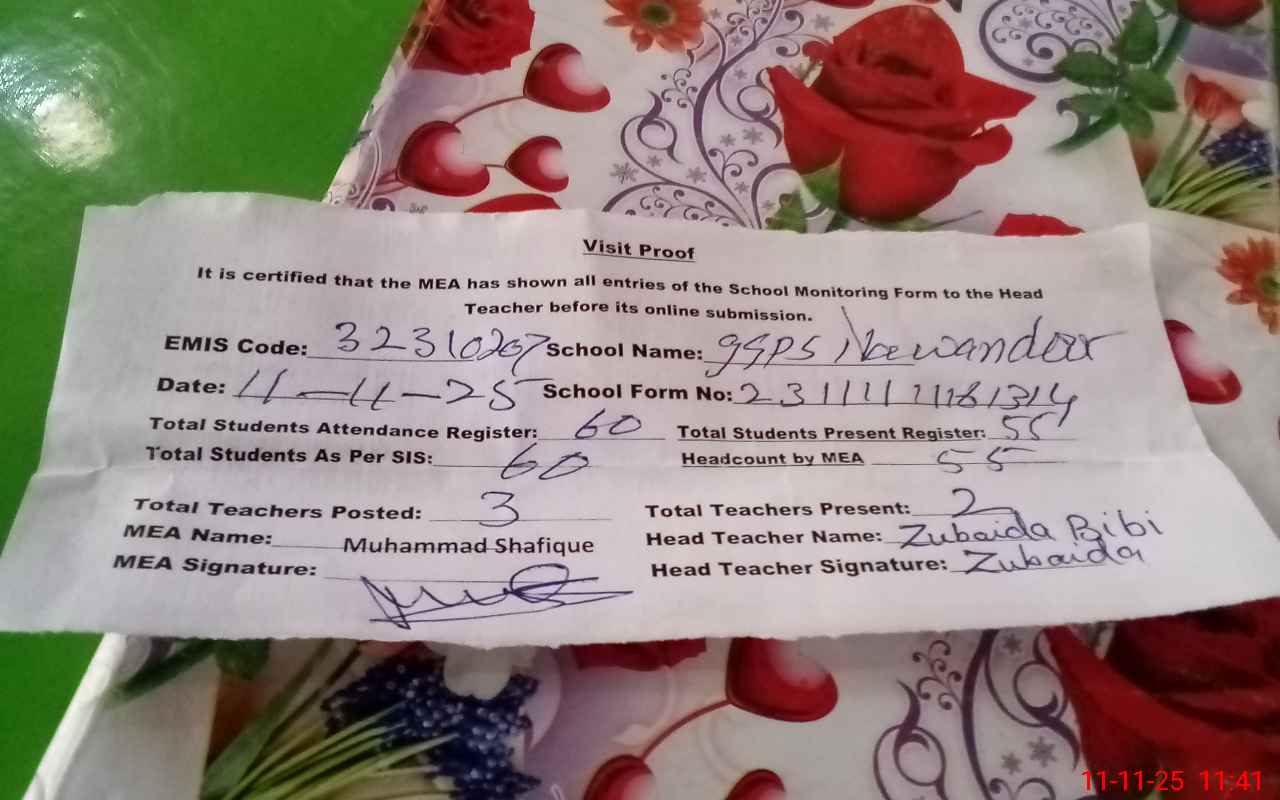 Visit Proof
It is certified that the MEA has shown all entries of the School Monitoring Form to the Head
Teacher before its online submission.
EMIS Code: 32310207 School Name: GGPS
Date: 11-11-25 School Form No:
Total Students Attendance Register: 60 Total Students Present Register: 55
Total Students As Per SIS: 60 Headcount by MEA 55
Total Teachers Posted: 3 Total Teachers Present: 2
MEA Name: Muhammad Shafique Head Teacher Name: Zubaida Bibi
MEA Signature: Head Teacher Signature: Zubaida
11-11-25 11:41